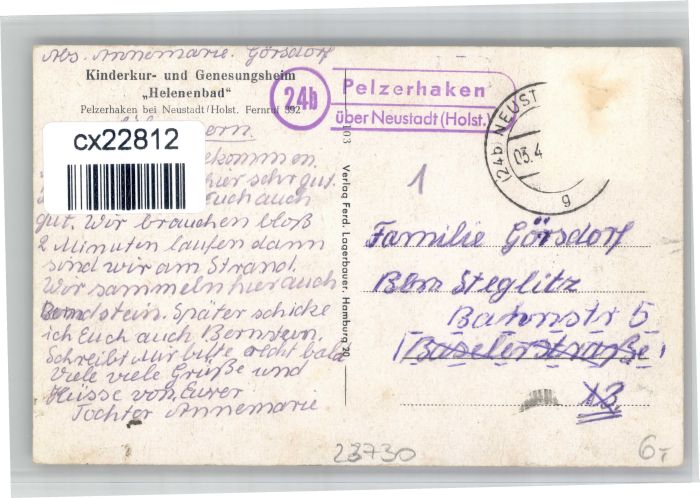 Abs. Annemarie. Görsdorf
Kinderkur- und Genesungsheim
„Helenenbad"
Pelzerhaken bei Neustadt/Holst. Fernruf 392
24b
Pelzerhaken
über Neustadt (Holst.)
(24b) NEUST
03.4
g
cx22812
gut. Wir brauchen bloß
2 Minuten laufen dann
sind wir am Strand.
Wir sammeln hier auch
Bernstein. Später schicke
ich Euch auch Bernstein
Schreibt mir bitte recht bald
Viele viele Grüße und
Küsse von Eurer
Tochter Annemarie
03 Verlag Ferd. Lagerbauer, Hamburg 20
1
Familie Görsdorf
Bln Steglitz
Bahnstr 5
Baselerstraße
13
23730
6,-